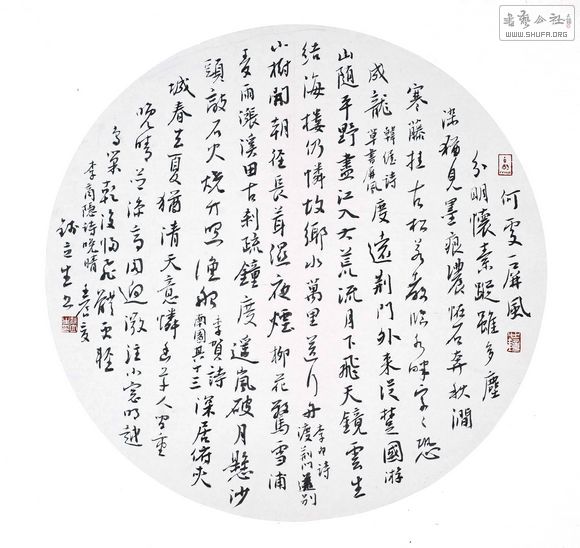 書藝公社
WWW.SHUFA.ORG
何處一屏風
分明懷素蹤雖多塵
染猶見墨痕濃怪石奔秋澗
寒藤挂古松若教臨水畔字々恐
成龍 韓偓詩 草書屏風 度遠荊門外來從楚國游
山隨平野盡江入大荒流月下飛天鏡雲生
結海樓仍憐故鄉水萬里送行舟 李白詩 渡荊門送別
小樹開朝徑長茸濕夜煙柳花驚雪浦
麥雨漲溪田古剎疏鐘度遙嵐破月懸沙
頭敲石火燒竹照漁船 李賀詩 南園其十三 深居俯夾
城春去夏猶清天意憐幽草人間重
晚晴並添高閣迥微注小窗明越
鳥巢乾後歸飛體更輕
李商隱詩晚晴